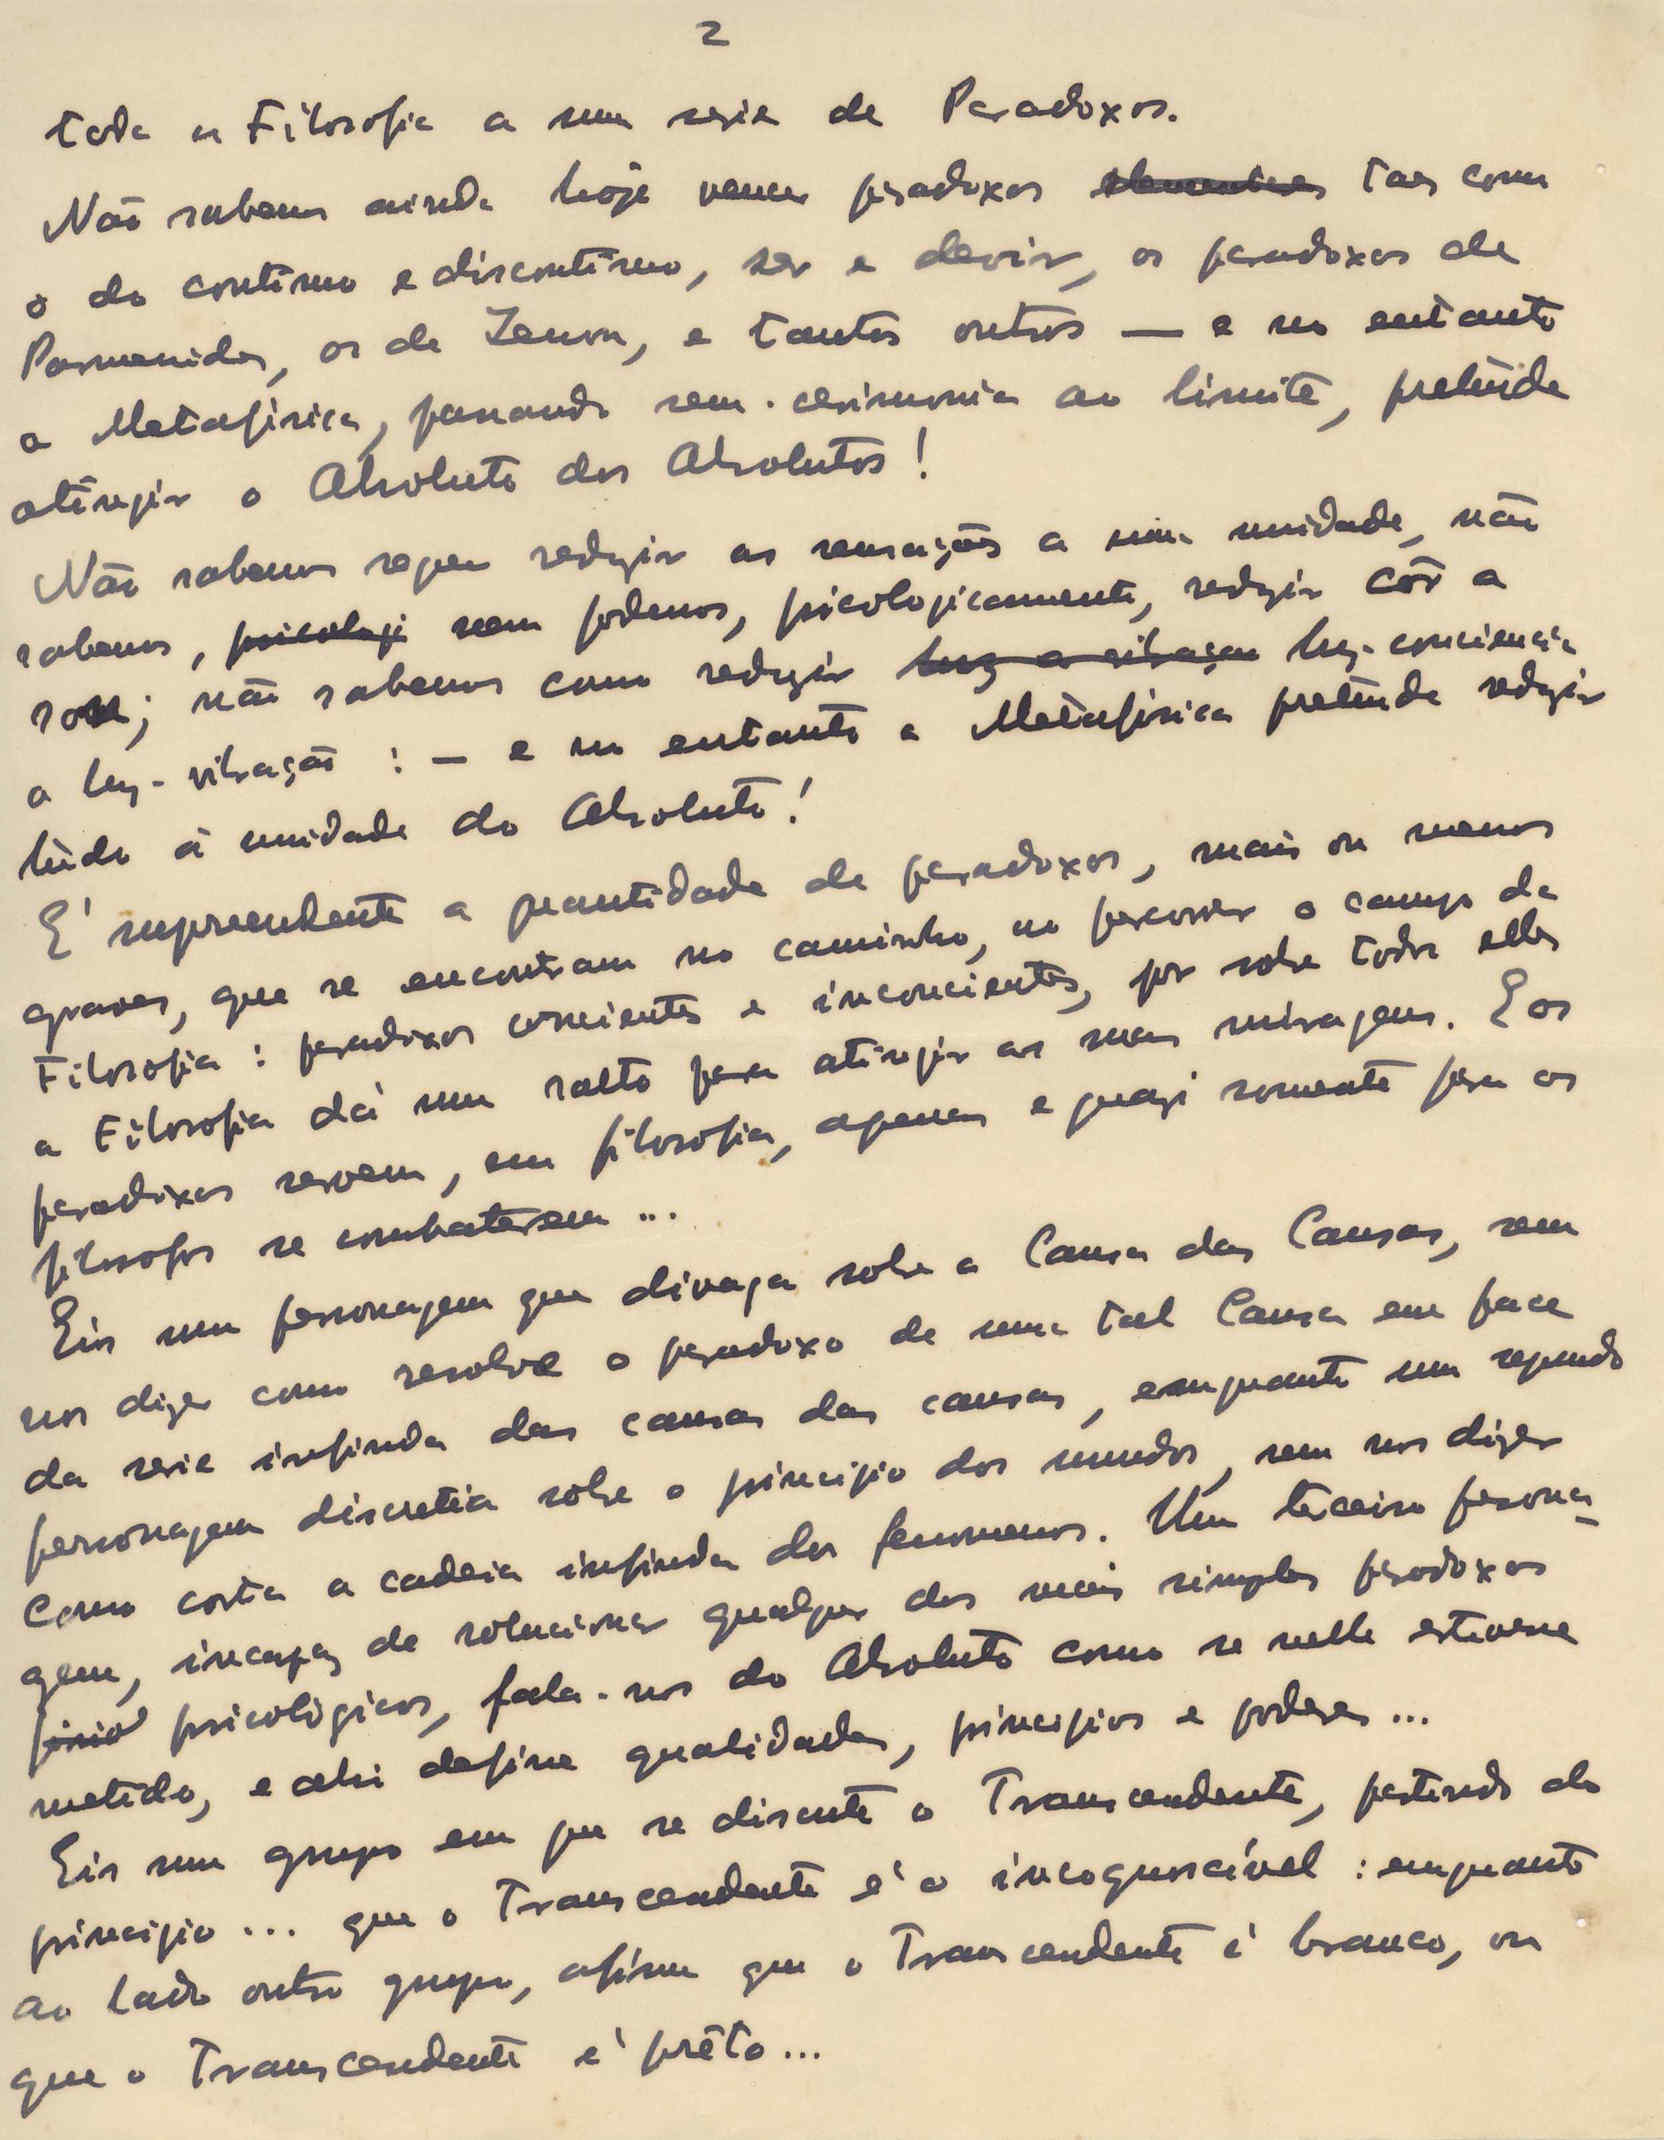 2
toda a Filosofia a uma serie de Paradoxos.
Não sabemos ainda hoje vencer paradoxos elementares taes como
o do continuo e discontinuo, ser e devir, os paradoxos de
Parmenides, os de Zenon, e tantos outros — e no entanto
a Metafisica, passando sem-cerimonia ao limite, pretende
atingir o Absoluto dos Absolutos!
Não sabemos sequer reduzir as sensações a uma unidade, não
sabemos, psicologi nem podemos, psicologicamente, reduzir côr a
som; não sabemos como reduzir luz a vibração luz-conciencia
a luz-vibração : — e no entanto a Metafisica pretende reduzir
tudo á unidade do Absoluto!
E' surpreendente a quantidade de paradoxos, mais ou menos
graves, que se encontram no caminho, ao percorrer o campo da
Filosofia : paradoxos concientes e inconcientes, por sobre todos elles
a Filosofia dá um salto para atingir as suas miragens. E os
paradoxos servem, em filosofia, apenas e quazi somente para os
filosofos se combaterem ...
Eis um personagem que divaga sobre a Causa das Causas, sem
nos dizer como resolve o paradoxo de uma tal Causa em face
da serie infinda das causas das causas, emquanto um segundo
personagem discretia sobre o principio dos mundos, sem nos dizer
como corta a cadeia infinda dos fenomenos. Um terceiro persona-
gem, incapaz de solucionar qualquer dos mais simples paradoxos
psicológicos, fala-nos do Absoluto como se nelle estivesse
metido, e ahi define qualidades, principios e poderes ...
Eis um grupo em que se discute o Transcendente, partindo do
principio ... que o Transcendente é o incognoscível : emquanto
ao lado outro grupo, afirma que o Transcendente é branco, ou
que o Transcendente é prêto ...